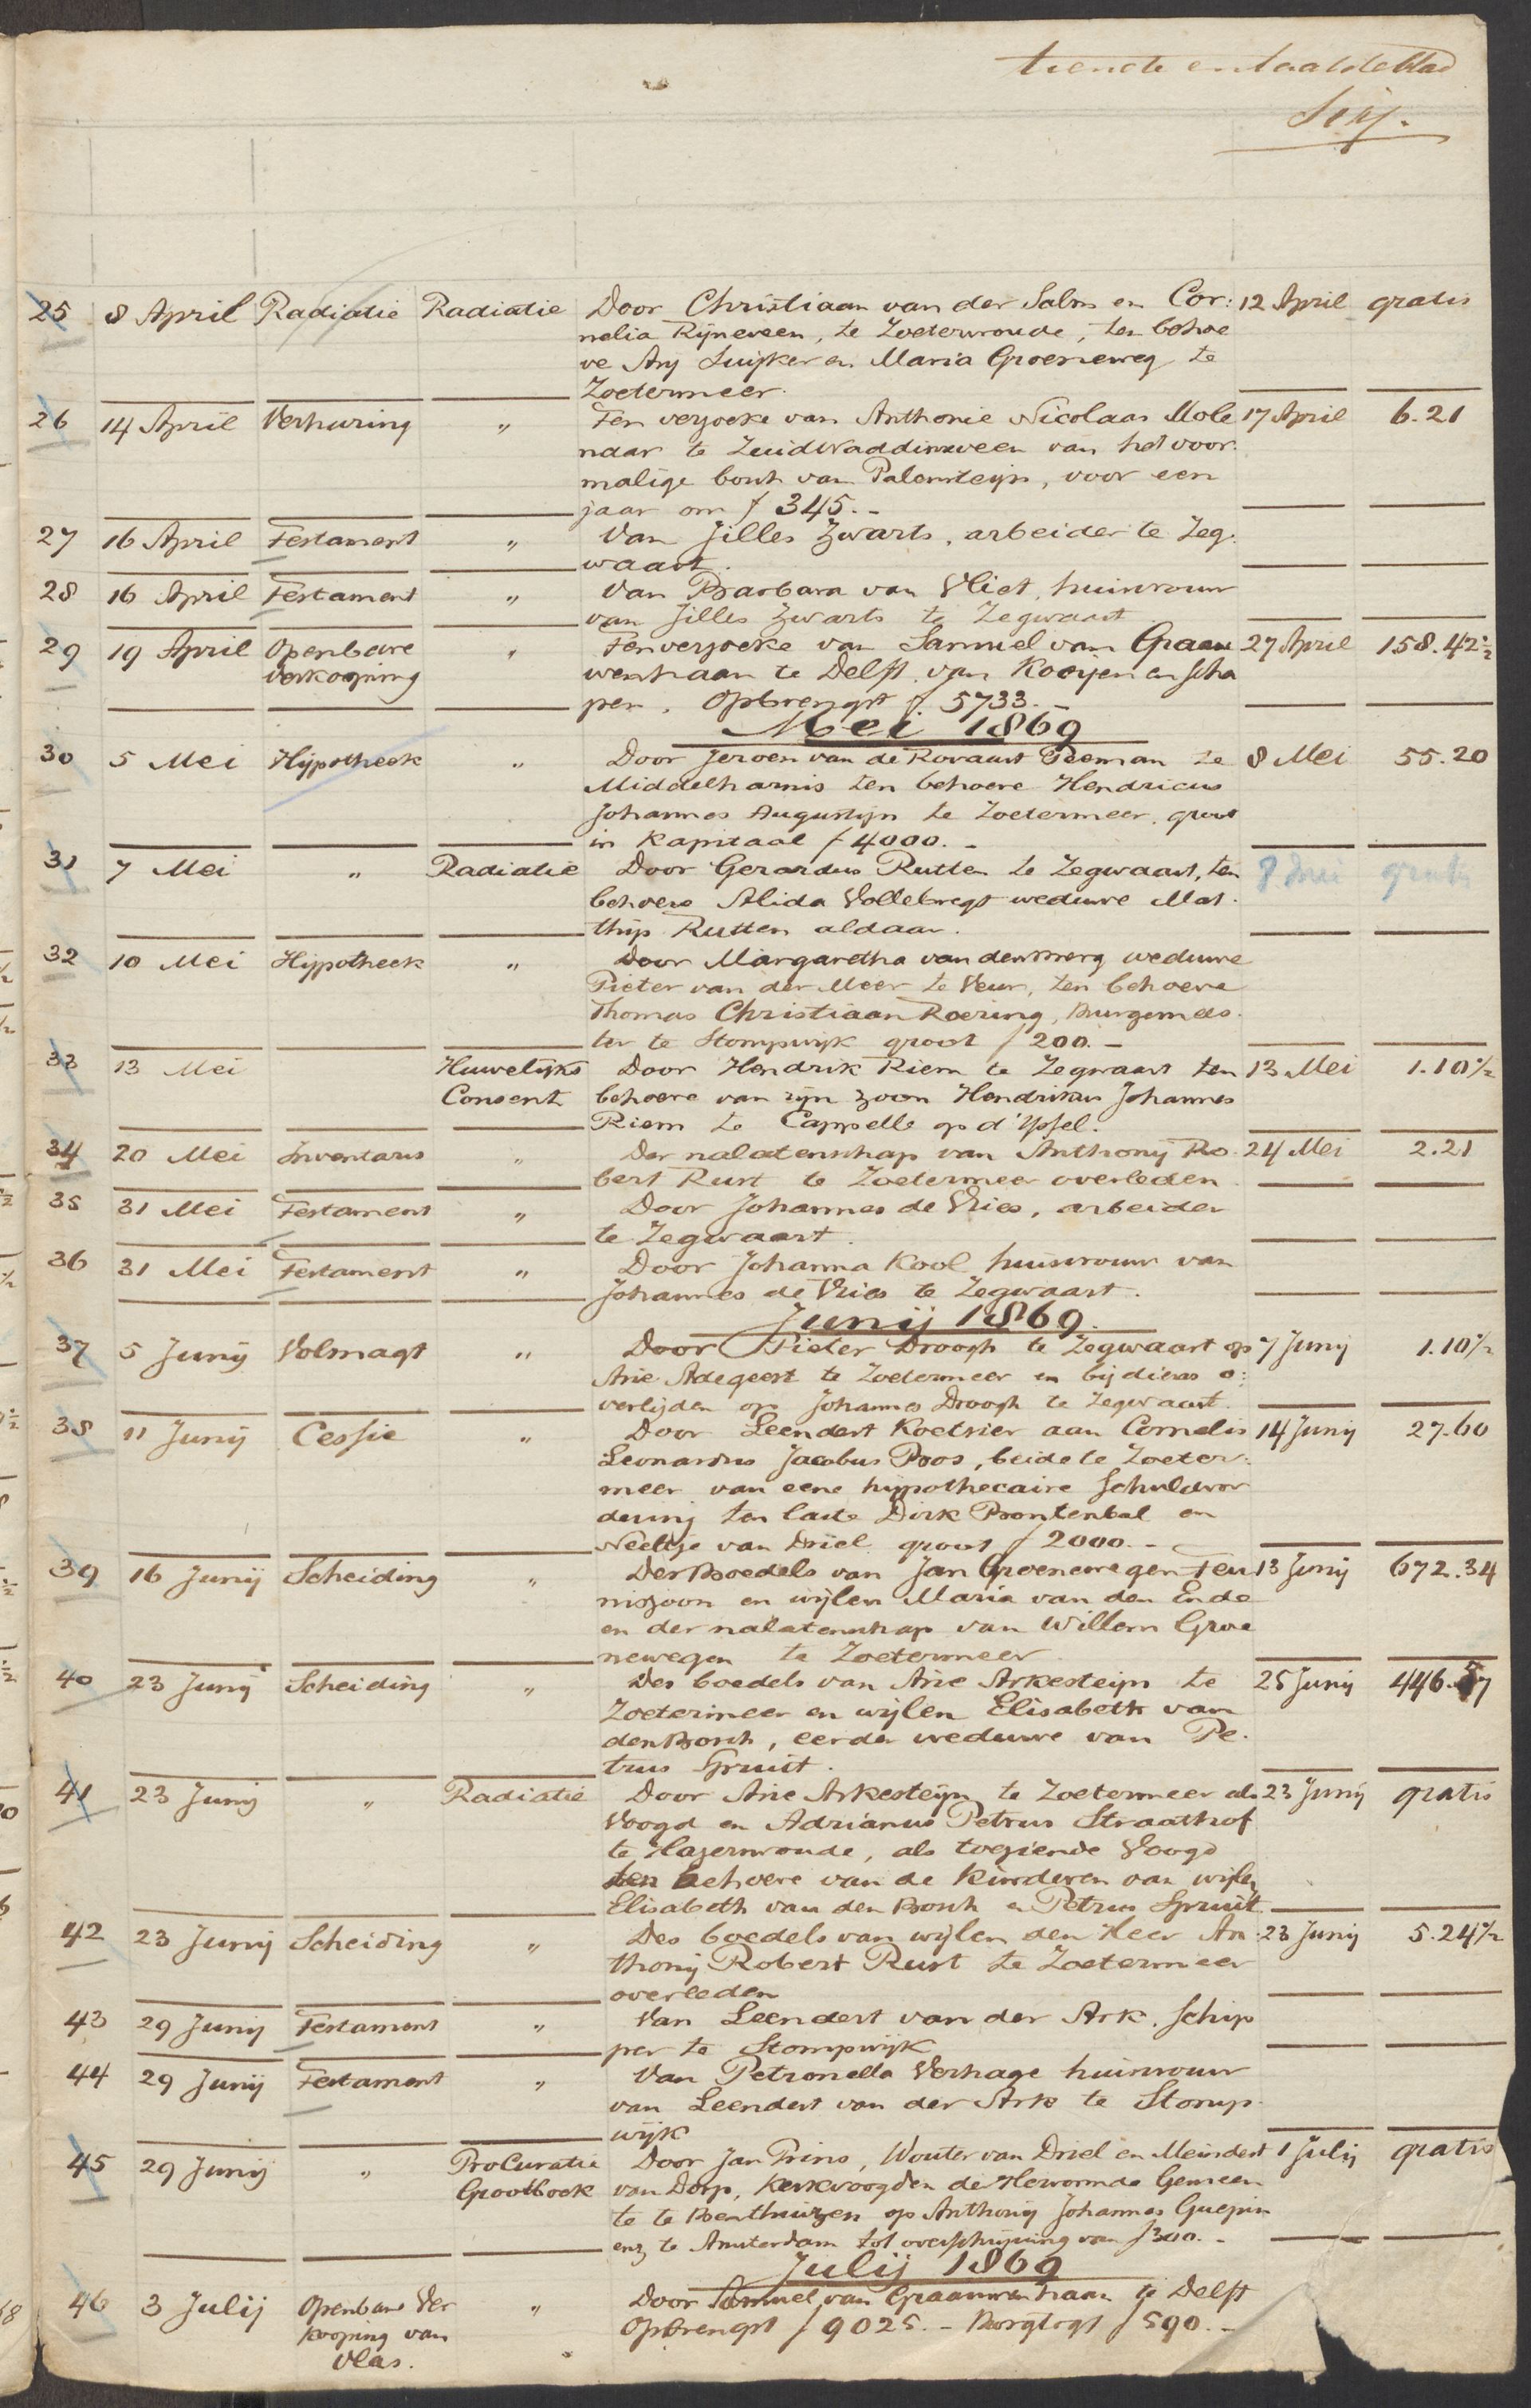 tiende en laatste blad
25 8 April Radiatie Radiatie Door Christiaan van der Salm en Cor: 12 April gratis
nelia Rijneveen, te Zoeterwoude, ten behoe
ve Arij Luijker en Maria Groeneweg te
Zoetermeer.
26 14 April Verhuring " Ten verzoeke van Anthonie Nicolaas Mole 17 April 6.21
naar te Zuidwaddinxveen van het voor:
malige bosch van Palensteijn, voor een
jaar om f 345.-
27 16 April Testament " Van Jilles Zwarts, arbeider te Zeg:
waart.
28 16 April Testament " Van Barbara van Vliet, huisvrouw
van Jilles Zwarts te Zegwaart
29 19 April Openbare " Ten verzoeke van Samuel van Graau 27 April 158.42½
verkooping wenhaan te Delft, van Kooijen en Scha
pen, Opbrengst f 5733.-
Mei 1869
30 5 Mei Hypotheek " Door Jeroen van de Rovaart Peeman te 8 Mei 55.20
Middelharnis ten behoeve Hendricus
Johannes Augustijn te Zoetermeer, groot
in Kapitaal f 4000.-
31 7 Mei " Radiatie Door Gerardus Rutten te Zegwaart, ten 8 Mei gratis
behoeve Alida Vollebregt weduwe Mat
thijs Rutten aldaar.
32 10 Mei Hypotheek " Door Margaretha van den Berg weduwe
Pieter van der Meer te Veur, ten behoeve
Thomas Christiaan Roering, Burgemees
ter te Stompwijk groot f 200.-
33 13 Mei Huwelijks Door Hendrik Riem te Zegwaart ten 13 Mei 1.10½
Consent behoeve van zijn zoon Hendrikus Johannes
Riem te Cappelle op d'Yssel.
34 20 Mei Inventaris " Der nalatenschap van Anthonij Ro 24 Mei 2.21
bert Rust te Zoetermeer overleden
35 31 Mei Testament " Door Johannes de Vries, arbeider
te Zegwaart.
36 31 Mei Testament " Door Johanna Kool huisvrouw van
Johannes de Vries te Zegwaart.
Junij 1869.
37 5 Junij Volmagt " Door Pieter Droogh te Zegwaart op 7 Junij 1.10½
Arie Adegeest te Zoetermeer en bij diens o:
verlijden op Johannes Droogh te Zegwaart.
38 11 Junij Cessie " Door Leendert Koetsier aan Cornelis 14 Junij 27.60
Leonardus Jacobus Poos, beide te Zoeter:
meer van eene hypothecaire Schuldvor
dering ten laste Dirk Bontenbal en
Neeltje van Driel groot f 2000.-
39 16 Junij Scheiding " Des Boedels van Jan Groenewegen Teu 13 Junij 672.34
niszoon en wijlen Maria van den Ende
en der nalatenschap van Willem Groe
newegen te Zoetermeer
40 23 Junij Scheiding " Des boedels van Arie Arkesteijn te 25 Junij 446.57
Zoetermeer en wijlen Elisabeth van
den Bosch, eerder weduwe van Pe
trus Spruit.
41 23 Junij " Radiatie Door Arie Arkesteijn te Zoetermeer als 23 Junij gratis
Voogd en Adrianus Petrus Straathof
te Hazerswoude, als toeziende Voogd
ten behoeve van de Kinderen van wijlen
Elisabeth van den Bosch en Petrus Spruit
42 23 Junij Scheiding " Des boedels van wijlen den Heer An: 23 Junij 5.24½
thonij Robert Rust te Zoetermeer
overleden
43 29 Junij Testament " Van Leendert van der Ark, Schip
per te Stompwijk
44 29 Junij Testament " Van Petronella Verhage huisvrouw
van Leendert van der Ark te Stomp
wijk
45 29 Junij " ProCuratie Door Jan Prins, Wouter van Driel en Meindert 1 Julij gratis
Grootboek van Dorp, Kerkvoogden der Hervormde Gemeen
te te Benthuizen op Anthonij Johannes Guepin
enz te Amsterdam tot overschrijving van f 300.-
Julij 1869
46 3 Julij Openbare Ver " Door Samuel van Graauwenhaan te Delft
kooping van Opbrengst f 9025.- Borgtogt f 590.-
Vlas.